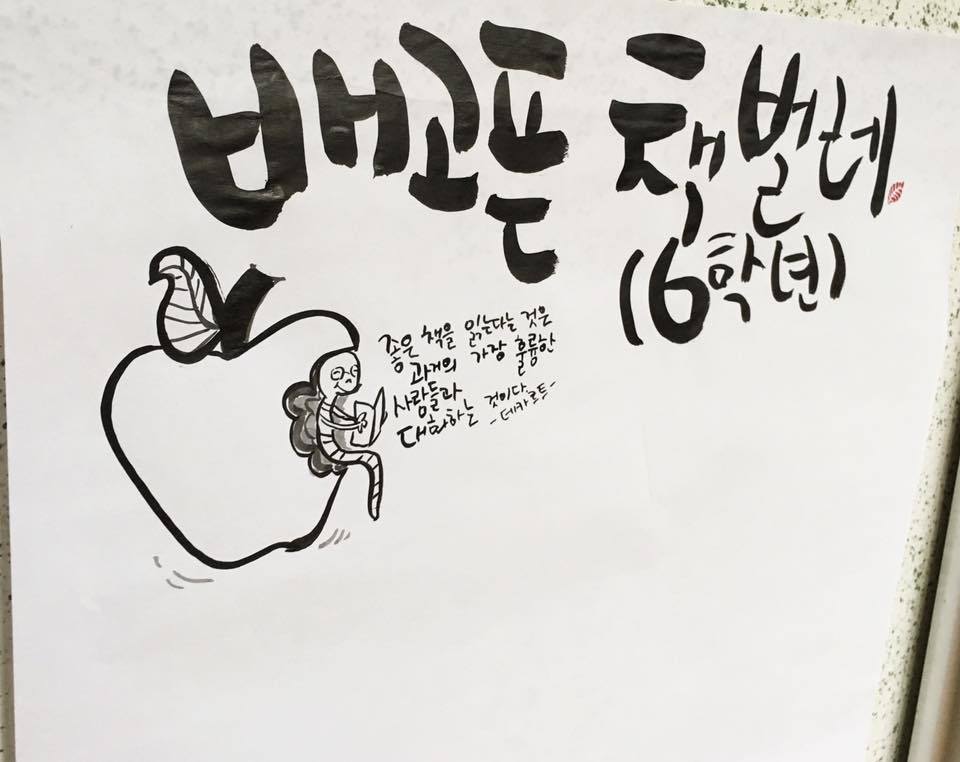 배고픈 책벌레
(6학년)
좋은 책을 읽는다는 것은
과거의 가장 훌륭한
사람들과
대화하는 것이다.
-데카르트-